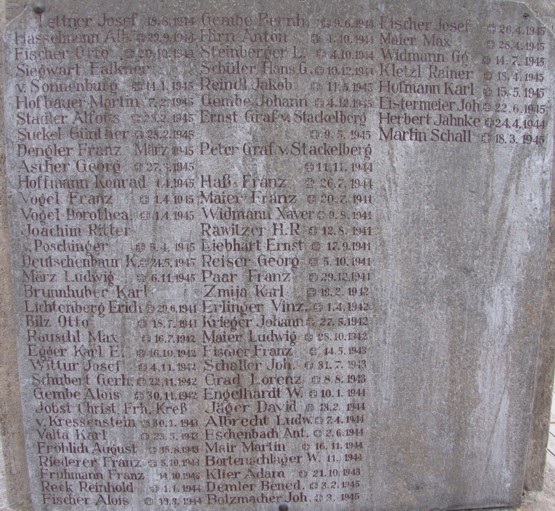 Lettner Josef 19.8.1944
Hasselmann Alb. 29.9.1944
Fischer Otto 20.10.1944
Siegwart Falkner
v. Sonnenburg 14.1.1945
Hofbauer Martin 7.2.1945
Stadler Alfons 23.2.1945
Suckel Günther 28.2.1945
Dengler Franz März 1945
Ascher Georg 27.3.1945
Hoffmann Konrad 1.4.1945
Vogel Franz 1.4.1945
Vogel Dorothea 1.4.1945
Joachim Ritter
v. Poschinger 5.4.1945
Deutschenbaur K. 24.5.1945
März Ludwig 6.11.1945
Brunnhuber Karl
Lichtenberg Erich 29.6.1941
Bilz Otto 18.7.1941
Rauschl Max 16.7.1942
Egger Karl F. 16.10.1942
Wittur Josef 4.11.1942
Schubert Gerh. 22.11.1942
Gembe Alois 30.11.1942
Jobst Christ. Frh. Kreß
v. Kressenstein 30.1.1943
Valta Karl 23.5.1943
Fröhlich August 15.8.1943
Riederer Franz 5.10.1943
Frühmann Franz 14.10.1943
Reck Reinhold 4.1.1944
Fischer Alois 19.3.1944
Gembe Bernh. 9.6.1944
Hirn Anton 4.10.1944
Steinberger L. 4.10.1944
Schüler Hans G. 10.12.1944
Reindl Jakob 11.4.1945
Gembe Johann 4.12.1945
Ernst Graf v. Stackelberg
9.5.1945
Peter Graf v. Stackelberg
11.11.1944
Haß Franz 26.7.1944
Maier Franz 20.7.1941
Widmann Xaver 9.8.1941
Rawitzer H.R. 12.8.1941
Liebhart Ernst 17.9.1941
Reiser Georg 5.10.1941
Paar Franz 29.12.1941
Zmija Karl 19.2.1942
Erlinger Vinz. 1.4.1942
Krieger Johann 27.5.1942
Maier Ludwig 28.10.1942
Fischer Franz 14.5.1943
Schaller Joh. 31.7.1943
Grad Lorenz 8.8.1943
Engelhardt W. 10.1.1944
Jäger David 13.2.1944
Albrecht Ludw. 7.4.1944
Eschenbach Ant. 2.6.1944
Mair Martin 16.11.1944
Bortenschlager W. 11.1944
Klier Adam 21.10.1943
Demler Bened. 3.2.1945
Bolzmacher Joh. 3.1945
Fischer Josef 26.4.1945
Maier Max 28.4.1945
Widmann Gg. 14.7.1945
Kletzl Rainer 15.4.1945
Hofmann Karl 15.5.1945
Eistermeier Joh. 22.6.1945
Herbert Jahnke 24.4.1944
Martin Schall 18.3.1945